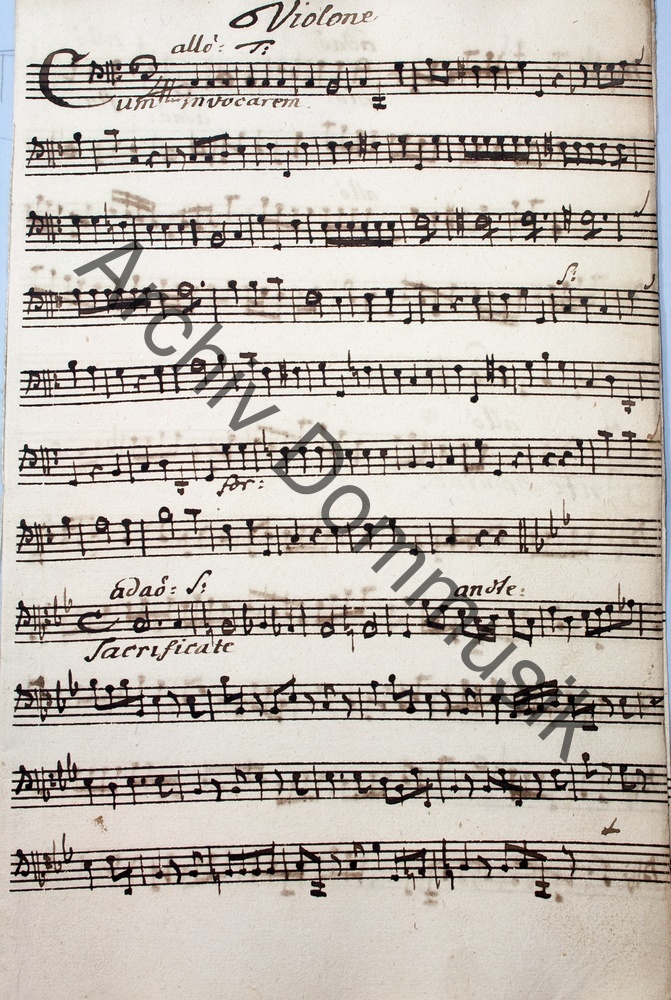 Violone
allo: T:
Cum invocarem
S:
for:
adao: S: andte:
Sacrificate
Archiv Dommusik